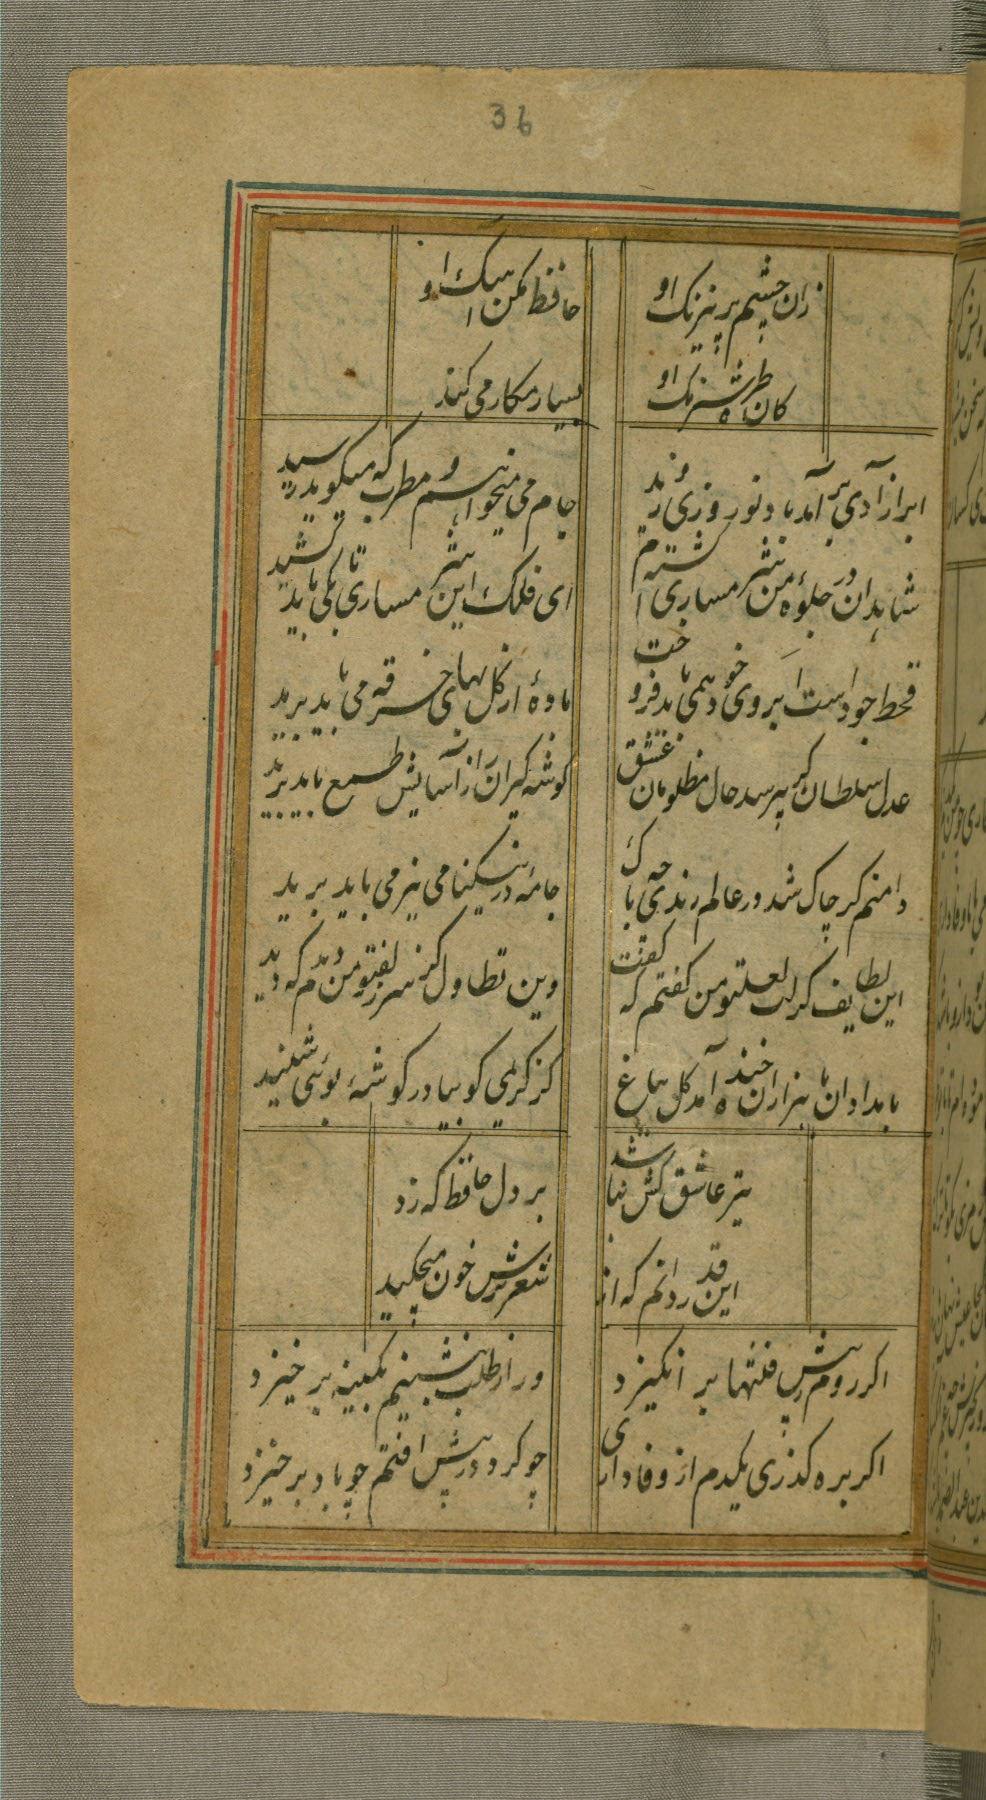 36
زان چشم پر نیرنک او
حافظ مکن اهنک او
کان طره شبرنک او
بسیار مکار می کند
ابر ازادی بر آمد باد نوروزی وزید
جام می میخواهم و مطرب که میکوید رسید
شاهدان در جلوه من شرمساری کشته ام
ای فلک این شرمساری تا بکی باید کشید
قحط جود است ابروی خود نمی باید فروخت
باده از کل بهای خرقه می باید برید
عدل سلطان کر نپرسد حال مظلومان عشق
کوشه کیران را ز آسایش طمع باید برید
دامنم کر چاک شد در عالم رندی چه باک
جامه در نیکنامی نیز می باید برید
این لطایف کز لب لعل تو من کفتم که کفت
وین تطاول کز سر زلف تو من دیدم که دید
بامدادان با هزاران خنده آمد کل بباغ
کز کریمی کوییا در کوشهٔ بوئی شنید
تیر عاشق کش نباشد
بر دل حافظ که زد
این قدر دانم که از
شعر ترش خون میچکید
اکر روم ز پیش فتنها بر انکیزد
ور از طلب بنشینم بکینه بر خیزد
اکر بره کذری یکدم از وفاداری
چو کرد در پیش افتم چو باد بر خیزد